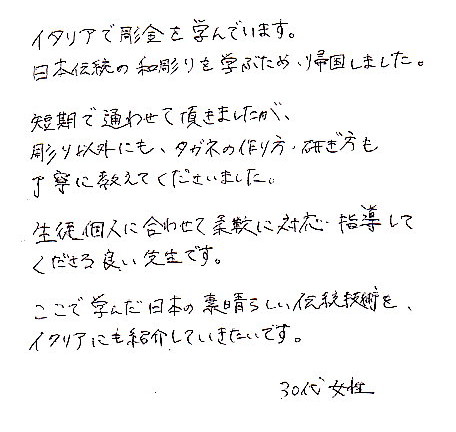 イタリアで彫金を学んでいます。
日本伝統の和彫りを学ぶため、帰国しました。
短期で通わせて頂きましたが、
彫り以外にも、タガネの作り方・研ぎ方も
丁寧に教えてくださいました。
生徒個人に合わせて柔軟に対応・指導して
くださる良い先生です。
ここで学んだ日本の素晴らしい伝統技術を、
イタリアにも紹介していきたいです。
30代女性